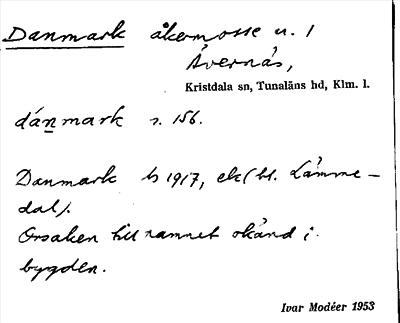 Danmark åkermosse u. 1
Åvernäs,
Kristdala sn, Tunaläns hd, Klm. l.
dánmark s. 156.
Danmark b 1917, ek (bl. Lämme-
dal).
Orsaken till namnet okänd i
bygden.
Ivar Modéer 1953